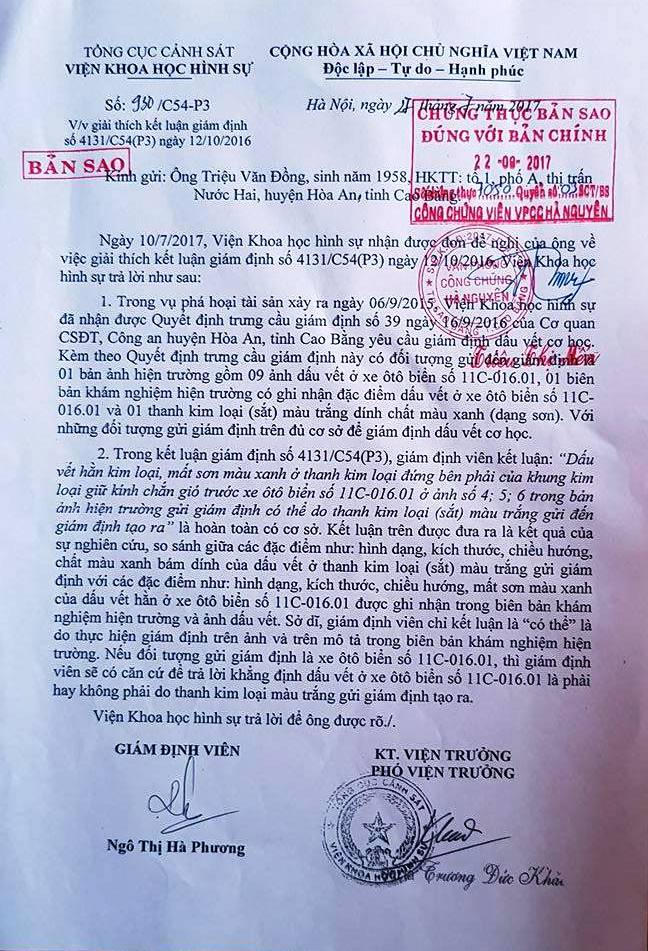 TỔNG CỤC CẢNH SÁT
VIỆN KHOA HỌC HÌNH SỰ
CỘNG HÒA XÃ HỘI CHỦ NGHĨA VIỆT NAM
Độc lập – Tự do – Hạnh phúc
Số: 930 /C54-P3
Hà Nội, ngày tháng 7 năm 2017
V/v giải thích kết luận giám định
số 4131/C54(P3) ngày 12/10/2016
BẢN SAO
CHỨNG THỰC BẢN SAO
ĐÚNG VỚI BẢN CHÍNH
22 -09- 2017
Số chứng thực 1050 Quyển số: SCT/BS
CÔNG CHỨNG VIÊN VPCC HÀ NGUYÊN
Kính gửi: Ông Triệu Văn Đồng, sinh năm 1958, HKTT: tổ 1, phố A, thị trấn
Nước Hai, huyện Hòa An, tỉnh Cao Bằng.
Ngày 10/7/2017, Viện Khoa học hình sự nhận được đơn đề nghị của ông về
việc giải thích kết luận giám định số 4131/C54(P3) ngày 12/10/2016. Viện Khoa học
hình sự trả lời như sau:
VĂN PHÒNG
CÔNG CHỨNG
HÀ NGUYÊN
1. Trong vụ phá hoại tài sản xảy ra ngày 06/9/2015. Viện Khoa học hình sự
đã nhận được Quyết định trưng cầu giám định số 39 ngày 16/9/2016 của Cơ quan
CSĐT, Công an huyện Hòa An, tỉnh Cao Bằng yêu cầu giám định dấu vết cơ học.
Kèm theo Quyết định trưng cầu giám định này có đối tượng gửi đến giám định là
01 bản ảnh hiện trường gồm 09 ảnh dấu vết ở xe ôtô biển số 11C-016.01, 01 biên
bản khám nghiệm hiện trường có ghi nhận đặc điểm dấu vết ở xe ôtô biển số 11C-
016.01 và 01 thanh kim loại (sắt) màu trắng dính chất màu xanh (dạng sơn). Với
những đối tượng gửi giám định trên đủ cơ sở để giám định dấu vết cơ học.
2. Trong kết luận giám định số 4131/C54(P3), giám định viên kết luận: “Dấu
vết hằn kim loại, mất sơn màu xanh ở thanh kim loại đứng bên phải của khung kim
loại giữ kính chắn gió trước xe ôtô biển số 11C-016.01 ở ảnh số 4; 5; 6 trong bản
ảnh hiện trường gửi giám định có thể do thanh kim loại (sắt) màu trắng gửi đến
giám định tạo ra” là hoàn toàn có cơ sở. Kết luận trên được đưa ra là kết quả của
sự nghiên cứu, so sánh giữa các đặc điểm như: hình dạng, kích thước, chiều hướng,
chất màu xanh bám dính của dấu vết ở thanh kim loại (sắt) màu trắng gửi giám
định với các đặc điểm như: hình dạng, kích thước, chiều hướng, mất sơn màu xanh
của dấu vết hằn ở xe ôtô biển số 11C-016.01 được ghi nhận trong biên bản khám
nghiệm hiện trường và ảnh dấu vết. Sở dĩ, giám định viên chỉ kết luận là “có thể” là
do thực hiện giám định trên ảnh và trên mô tả trong biên bản khám nghiệm hiện
trường. Nếu đối tượng gửi giám định là xe ôtô biển số 11C-016.01, thì giám định
viên sẽ có căn cứ để trả lời khẳng định dấu vết ở xe ôtô biển số 11C-016.01 là phải
hay không phải do thanh kim loại màu trắng gửi giám định tạo ra.
Viện Khoa học hình sự trả lời để ông được rõ./.
GIÁM ĐỊNH VIÊN
Ngô Thị Hà Phương
KT. VIỆN TRƯỞNG
PHÓ VIỆN TRƯỞNG
TỔNG CỤC CẢNH SÁT
VIỆN KHOA HỌC HÌNH SỰ
Trương Đức Khải